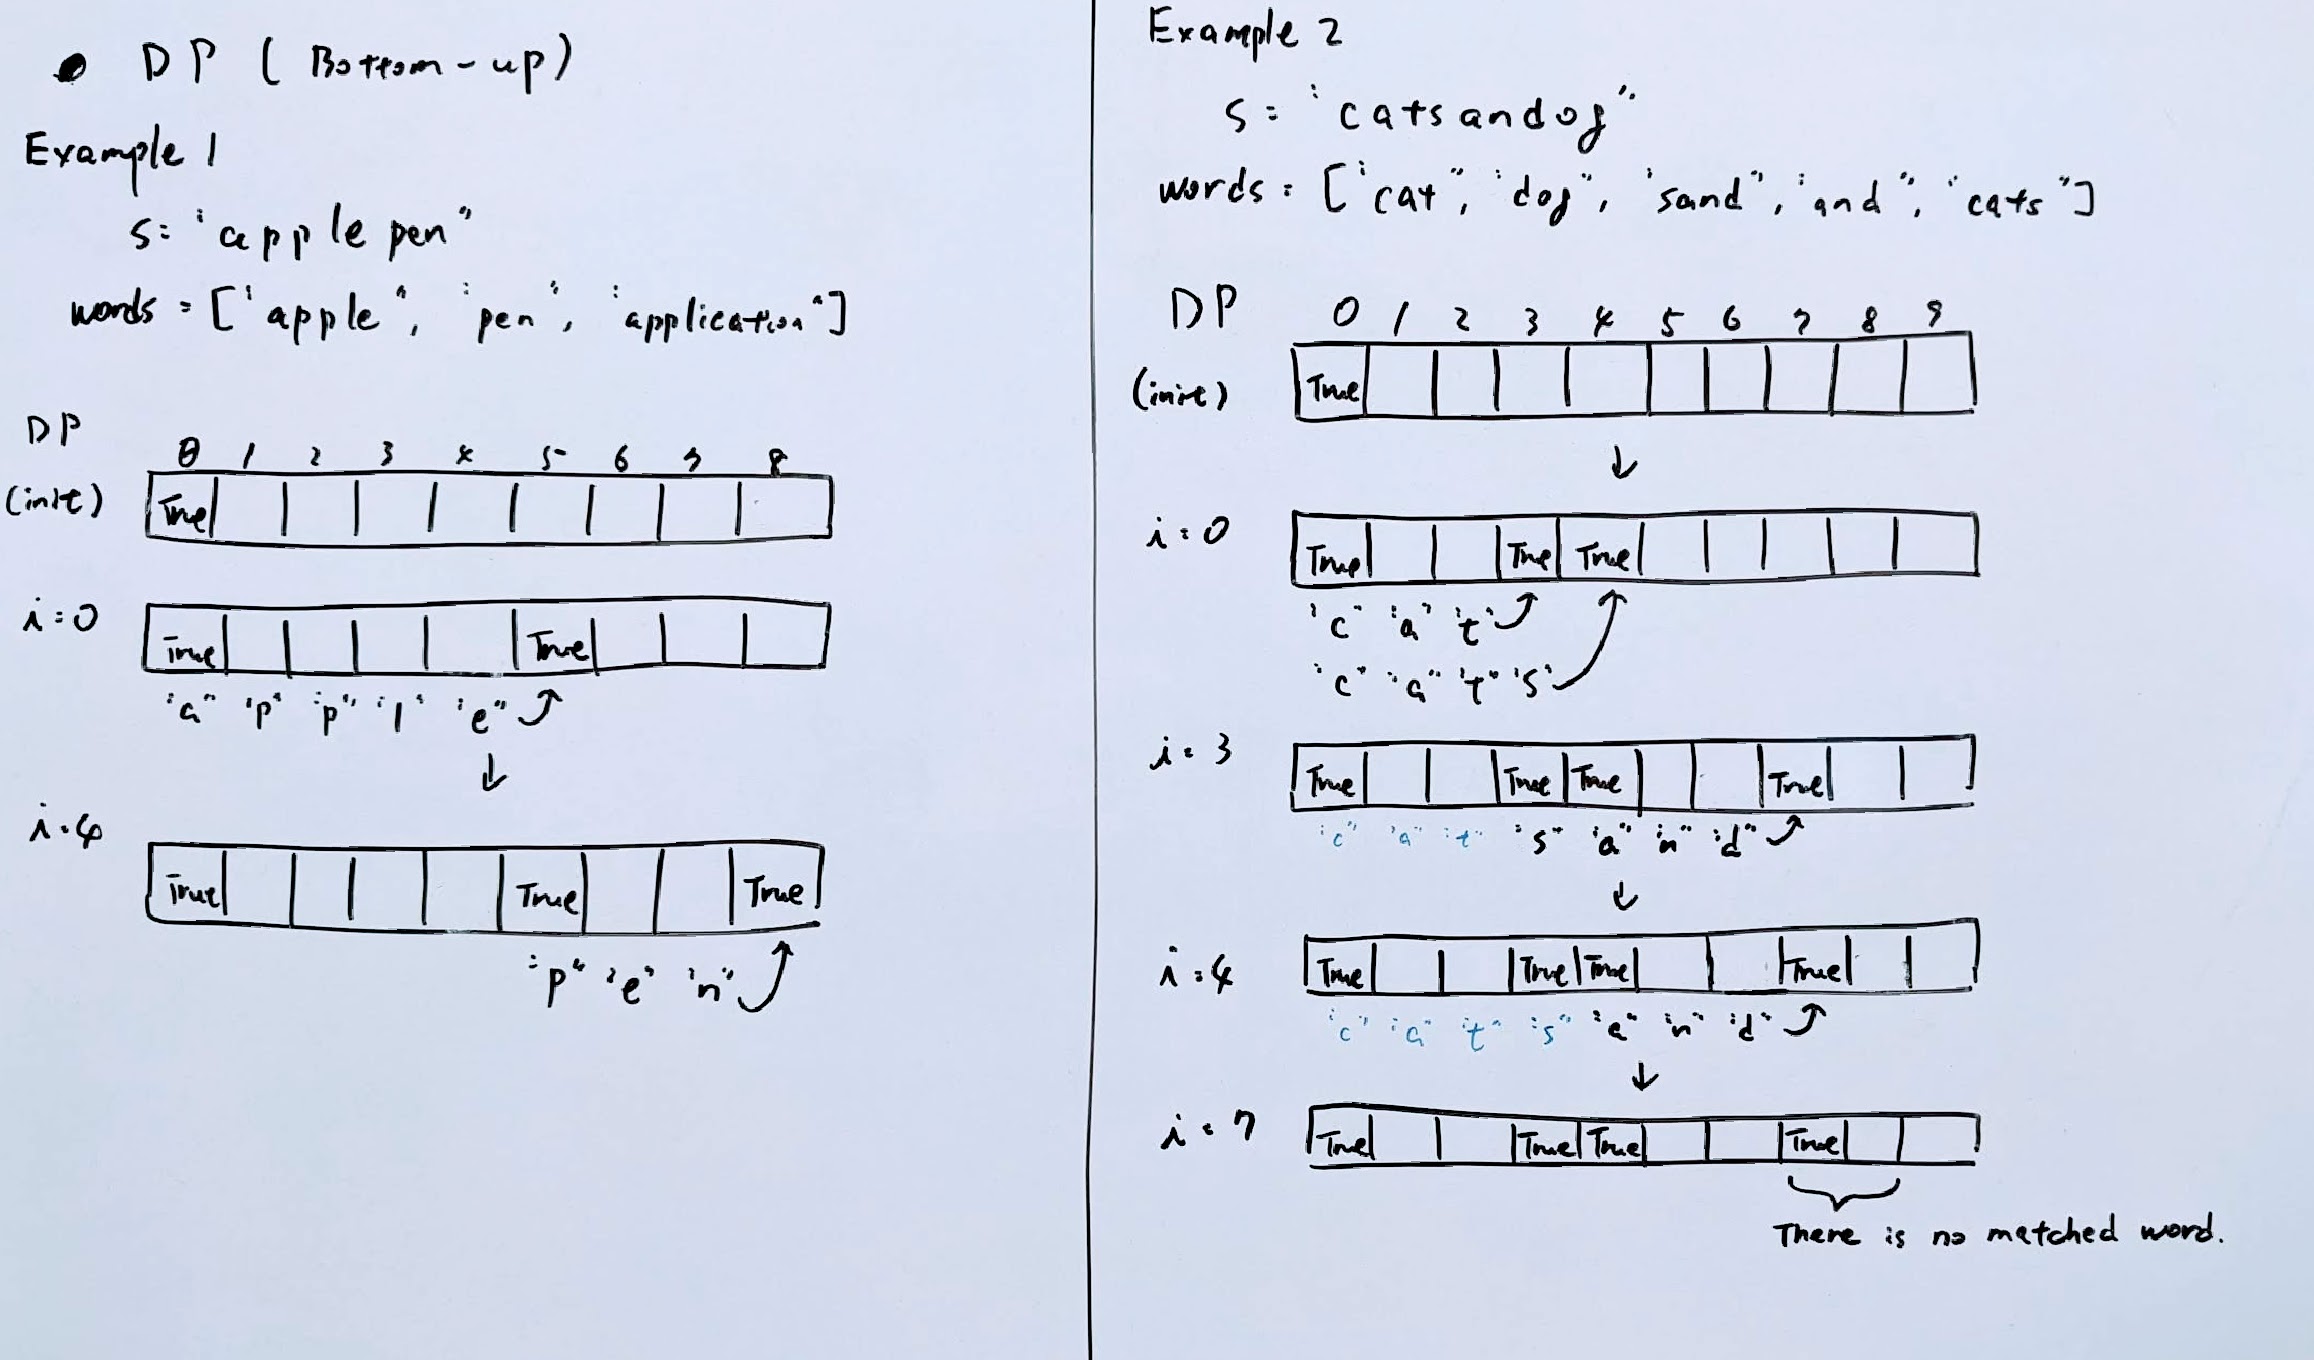 • DP ( Bottom-up)
Example 1
s= "applepen"
words = ["apple", "pen", "application"]
DP
0 1 2 3 4 5 6 7 8
(init) True
i=0 True True
"a" "p" "p" "l" "e"
↓
i=4 True True True
"p" "e" "n"
Example 2
s= "catsandog"
words = ["cat", "dog", "sand", "and", "cats"]
DP 0 1 2 3 4 5 6 7 8 9
(init) True
↓
i=0 True True True
"c" "a" "t"
"c" "a" "t" "s"
i=3 True True True True
"c" "a" "t" "s" "a" "n" "d"
↓
i=4 True True True True
"c" "a" "t" "s" "a" "n" "d"
↓
i=7 True True True True
There is no matched word.